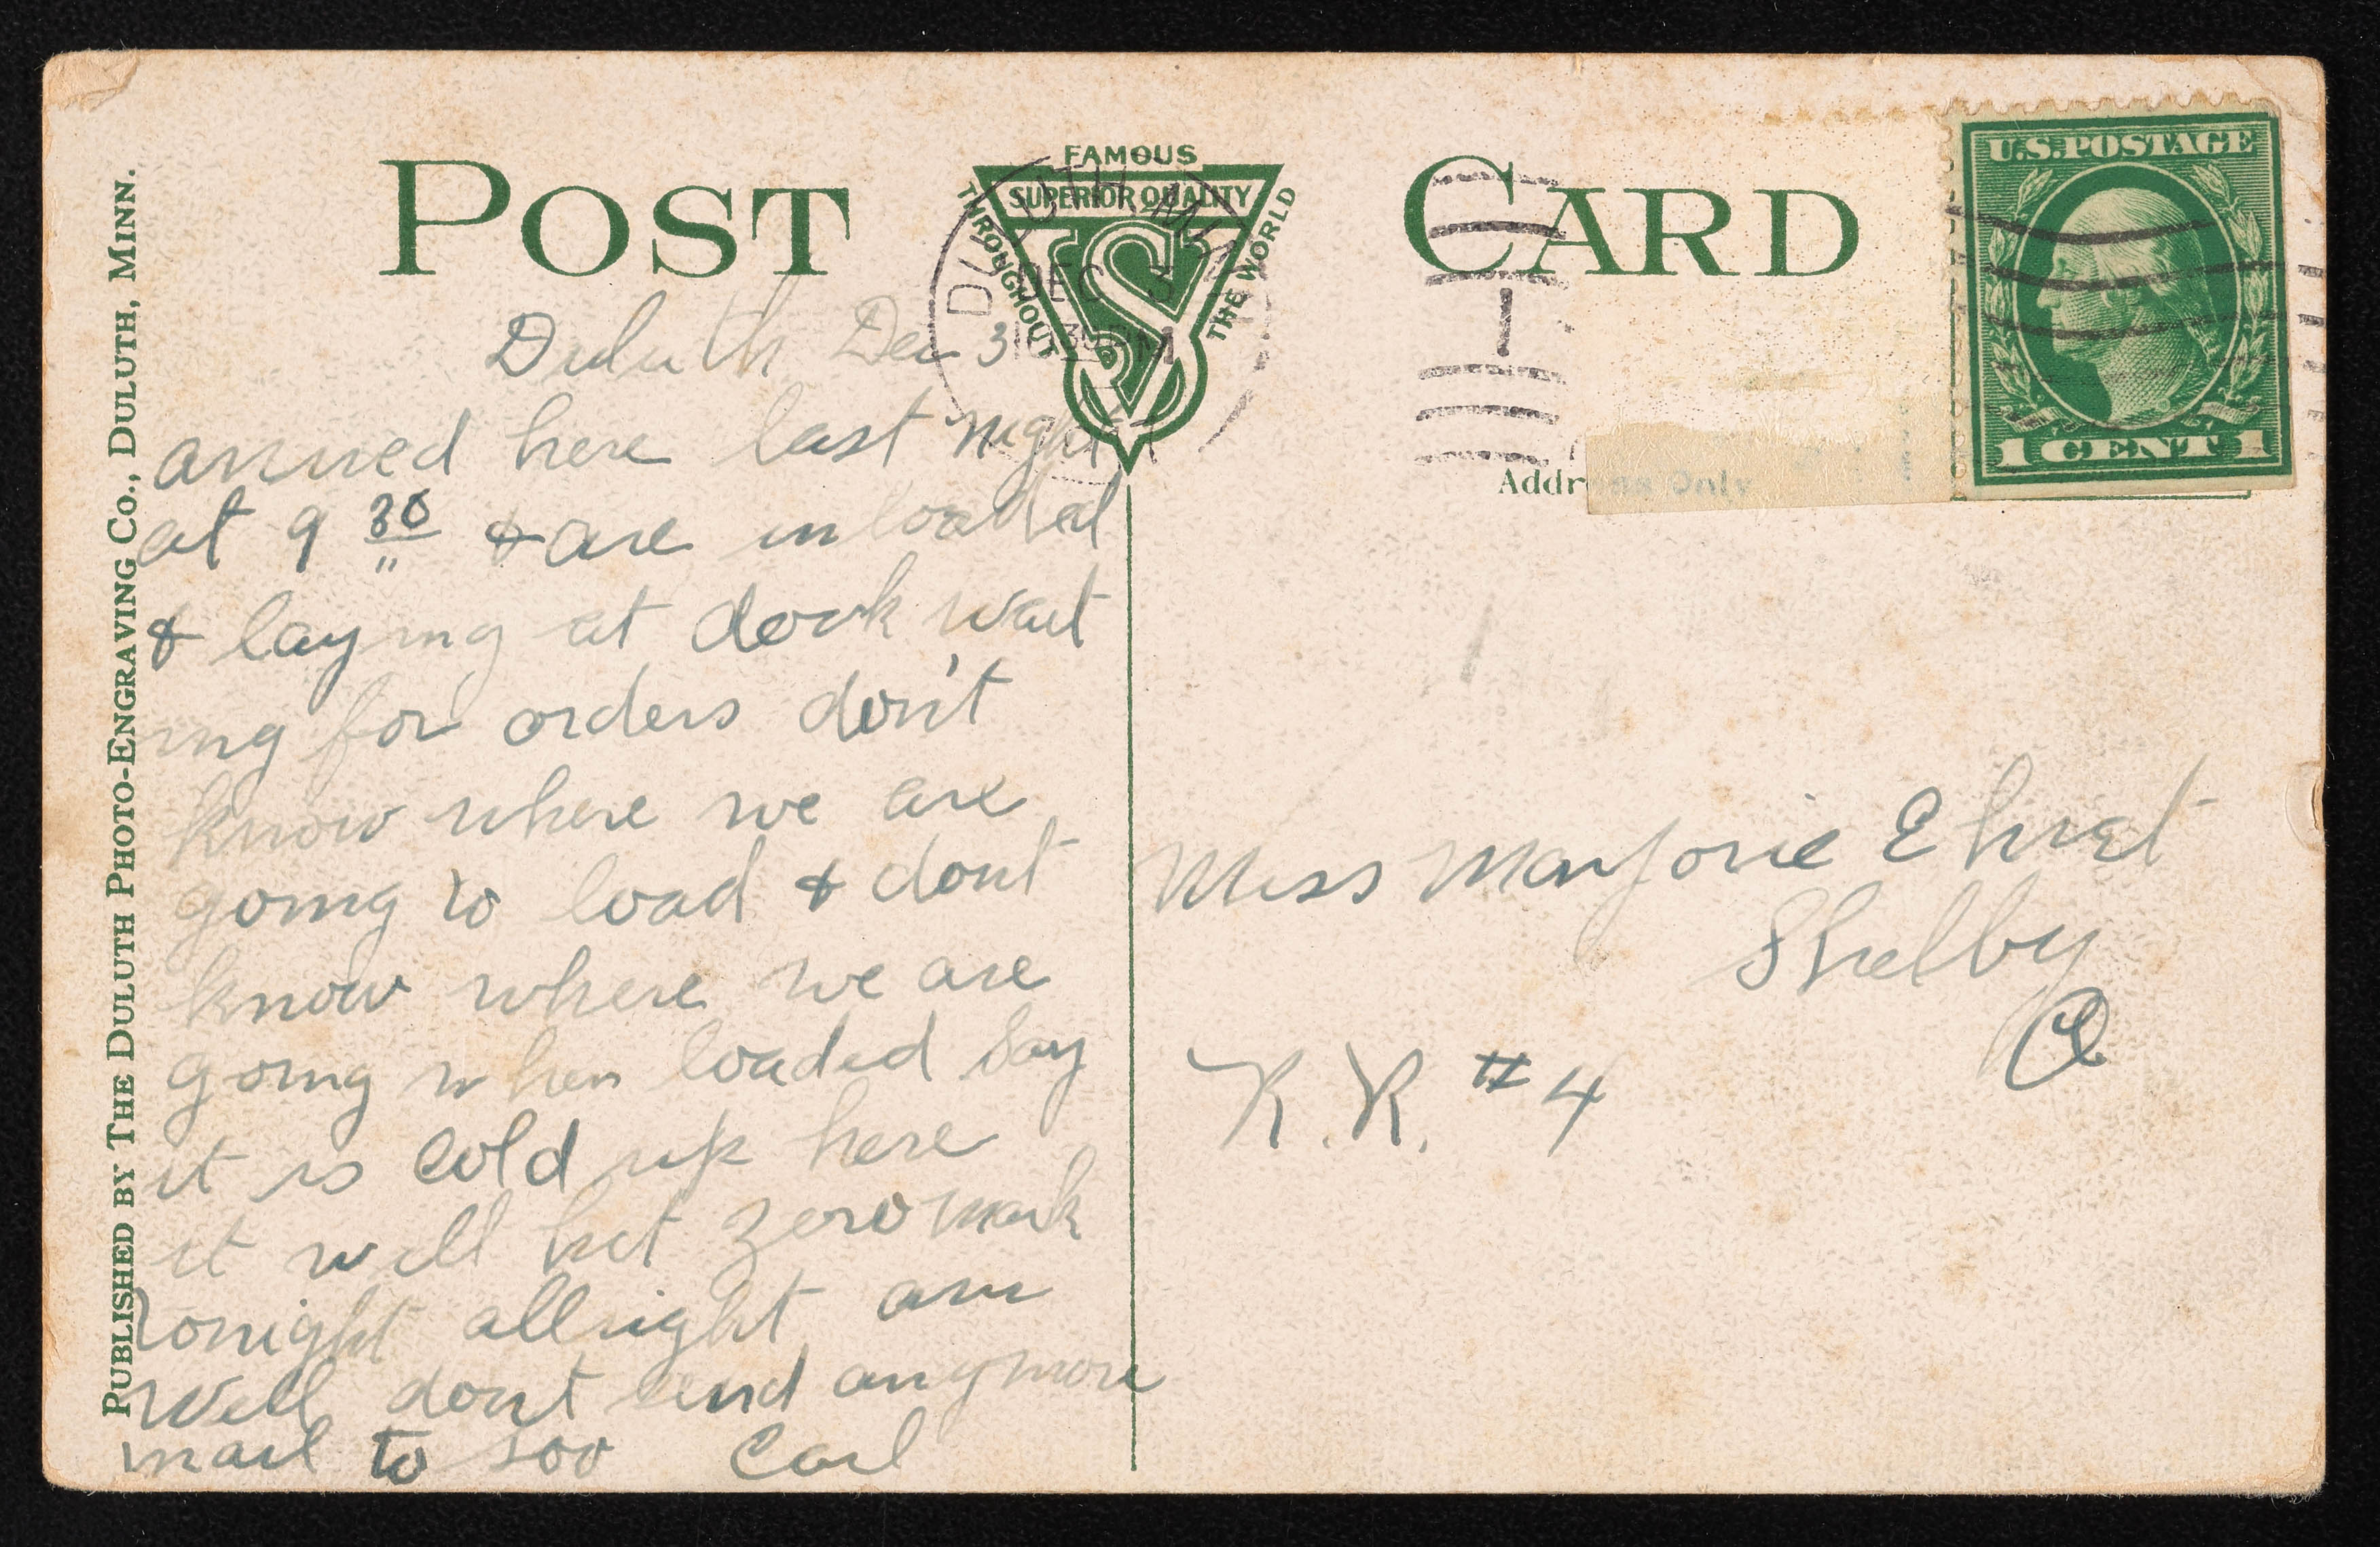 POST CARD
FAMOUS
SUPERIOR QUALITY
THROUGHOUT
THE WORLD
S
DULUTH, MINN.
DEC 3
30 PM
1
U.S. POSTAGE
1 CENT 1
Address Only
PUBLISHED BY THE DULUTH PHOTO-ENGRAVING CO., DULUTH, MINN.
Duluth Dec 3
arrived here last night
at 9 30 & are unloaded
& laying at dock wait
ing for orders don't
know where we are
going to load & dont
know where we are
going when loaded Say
it is cold up here
it will hit zero mark
tonight allright am
well dont send anymore
mail to Soo Carl
Miss Marjorie Ehret
Shelby
O
R.R. #4